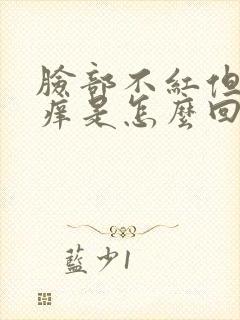 臉部不紅但
痒是怎麼回
藍少1